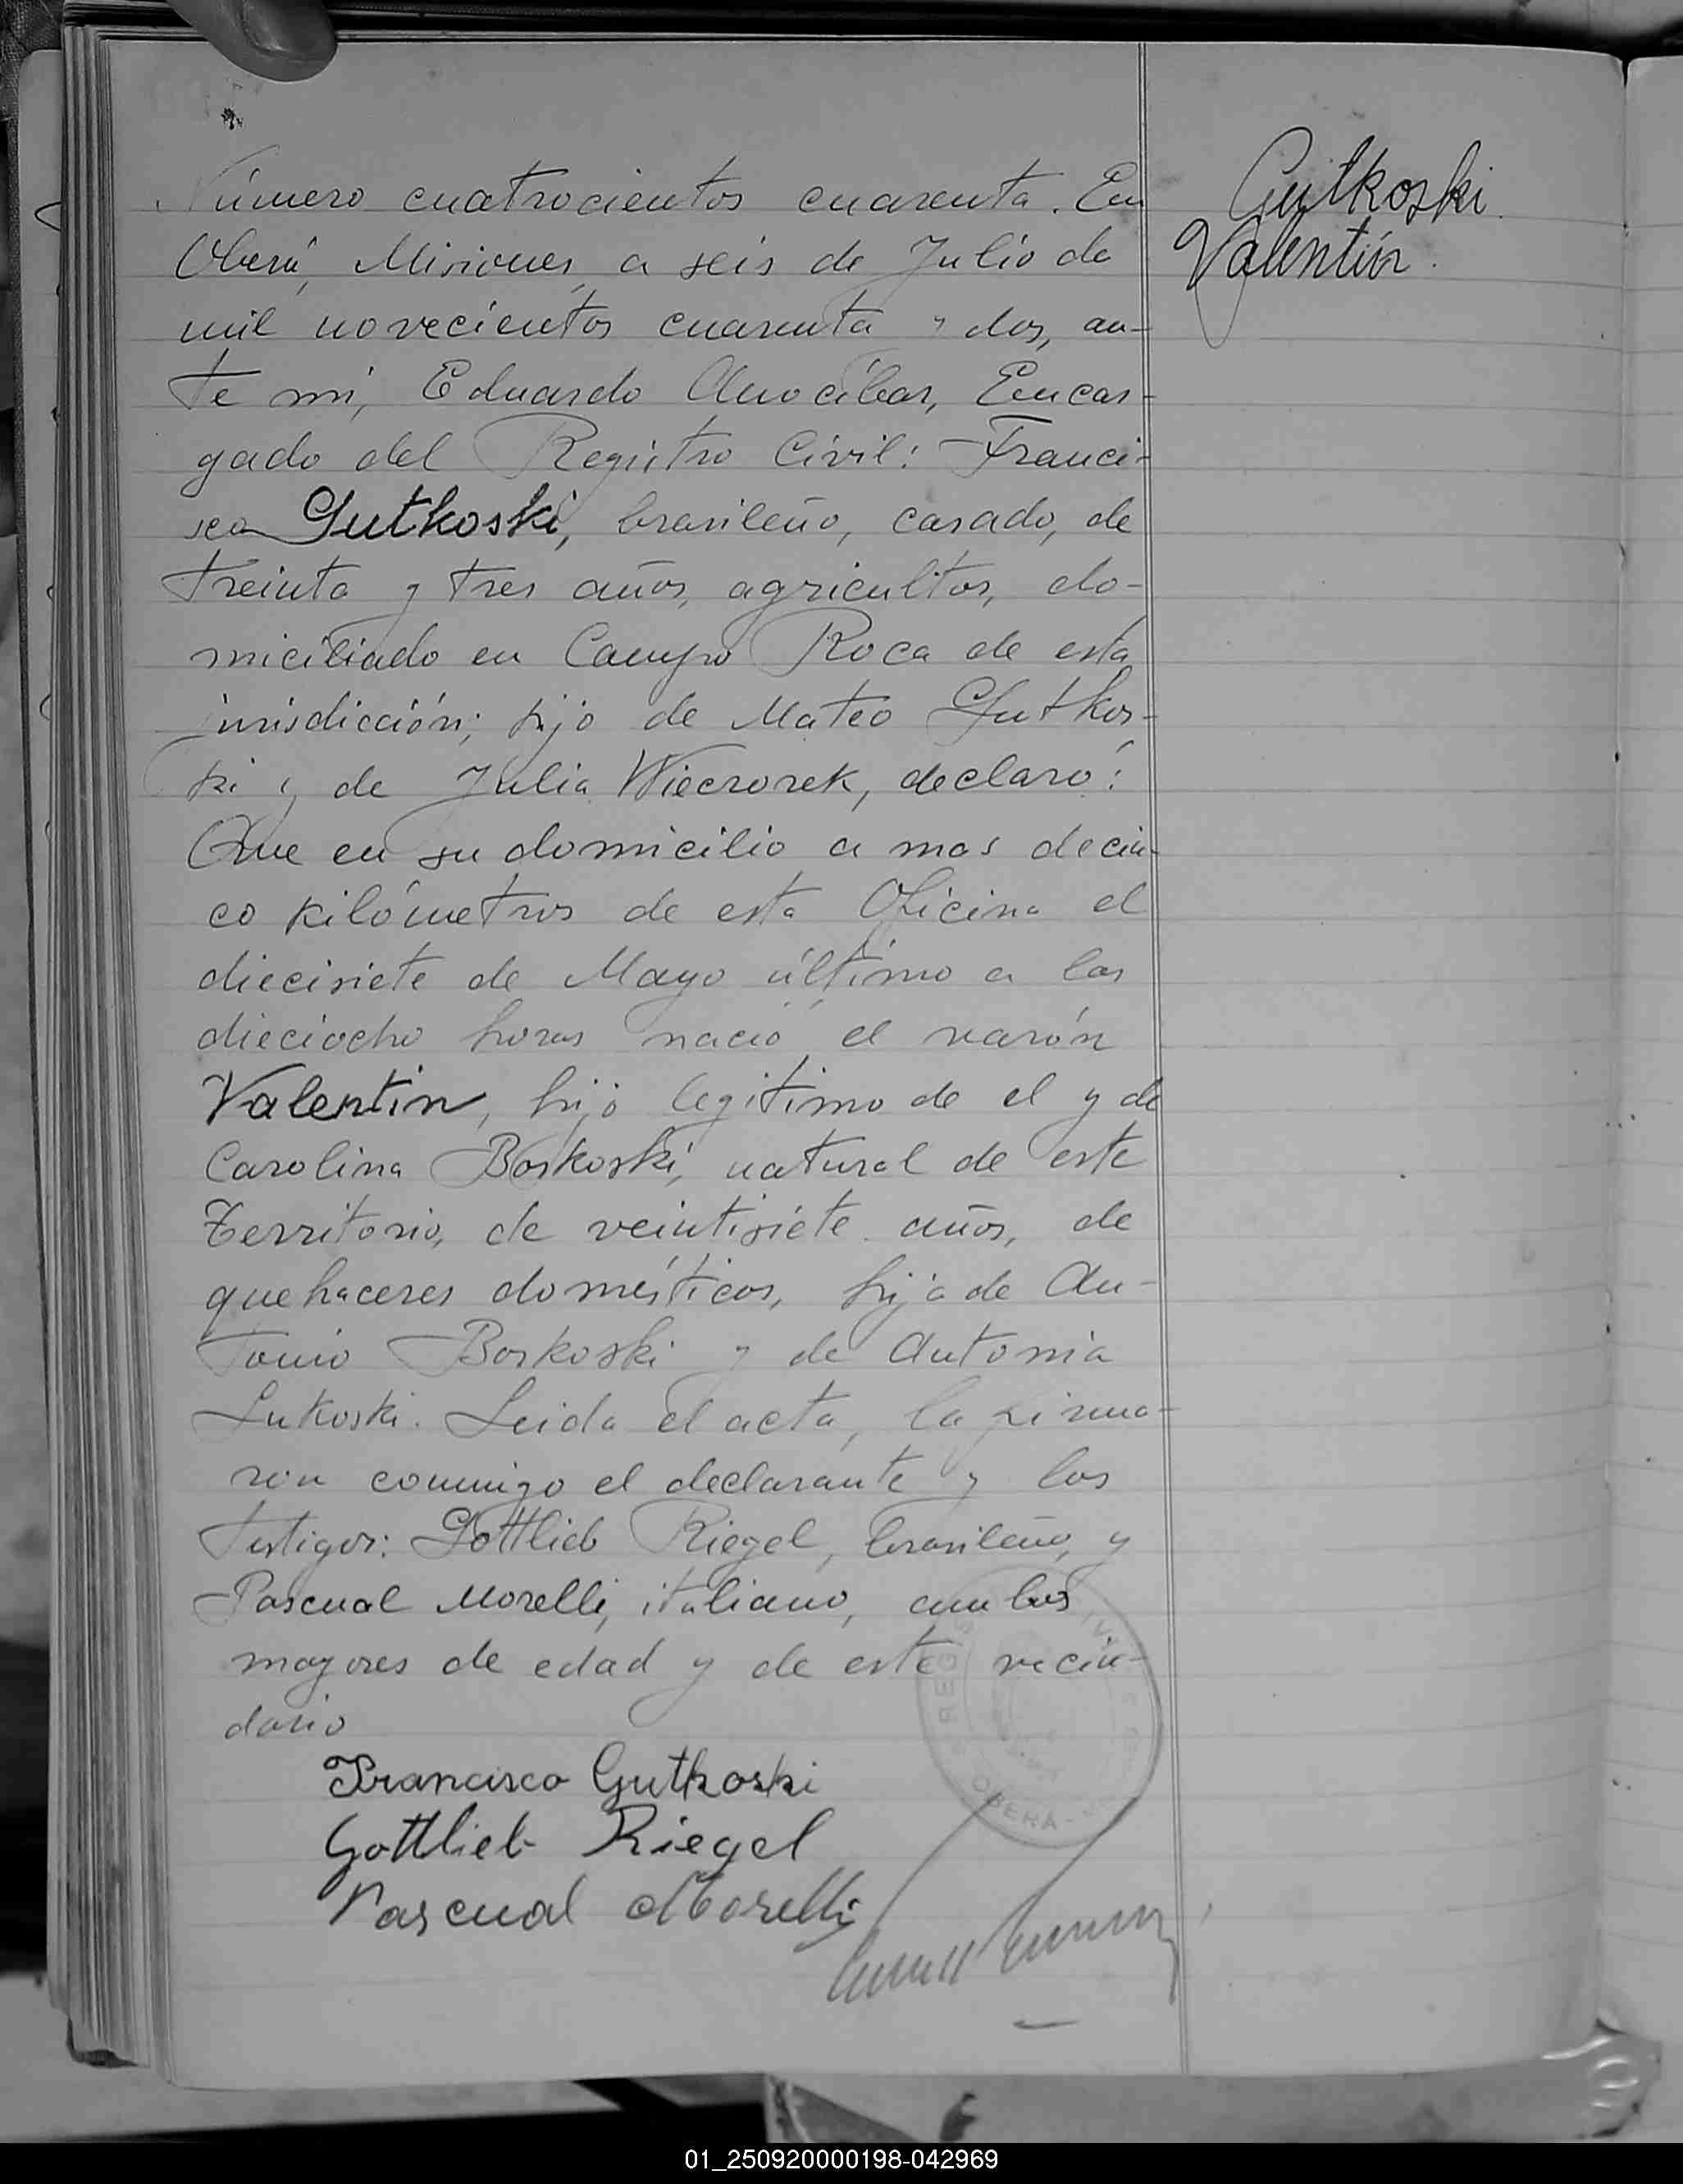 Número cuatrocientos cuarenta. En
Oberá, Misiones, a seis de Julio de
mil novecientos cuarenta y dos, an-
te mi, Eduardo Anocíbar, Encar-
gado del Registro Civil: Franci-
sco Gutkoski, brasileño, casado, de
treinta y tres años, agricultor, do-
miciliado en Campo Roca de esta
jurisdicción; hijo de Mateo Gutkos-
ki y de Julia Wieczorek, declaró:
Que en su domicilio a mas de cin-
co kilómetros de esta Oficina el
diecisiete de Mayo último a las
dieciocho horas nació el varón
Valentin, hijo legitimo de el y de
Carolina Borkoski, natural de este
Territorio, de veintisiete años, de
quehaceres domésticos, hija de An-
tonio Borkoski y de Antonia
Lukoski. Leida el acta, la firma-
ron conmigo el declarante y los
testigos: Gottlieb Riegel, brasileño, y
Pascual Morelli, italiano, ambos
mayores de edad y de este vecin-
dario
Francisco Gutkoski
Gottlieb Riegel
Pascual Morelli
Gutkoski
Valentín
OBERÁ
01_250920000198-042969